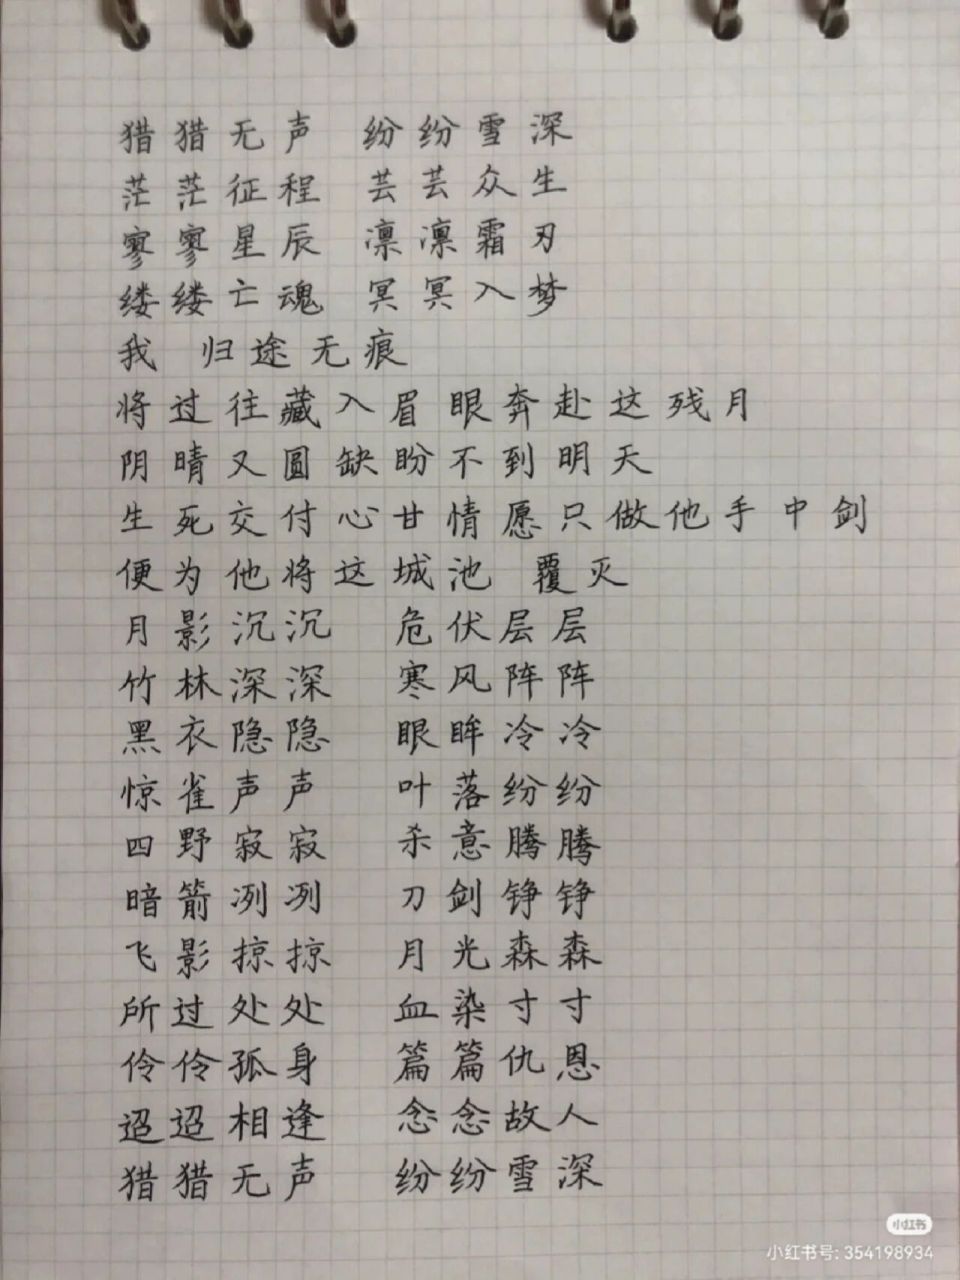 猎猎无声 纷纷雪深
茫茫征程 芸芸众生
寥寥星辰 凛凛霜刃
缕缕亡魂 冥冥入梦
我 归途无痕
将过往藏入眉眼奔赴这残月
阴晴又圆缺盼不到明天
生死交付心甘情愿只做他手中剑
便为他将这城池 覆灭
月影沉沉 危伏层层
竹林深深 寒风阵阵
黑衣隐隐 眼眸冷冷
惊雀声声 叶落纷纷
四野寂寂 杀意腾腾
暗箭冽冽 刀剑铮铮
飞影掠掠 月光森森
所过处处 血染寸寸
伶伶孤身 篇篇仇恩
迢迢相逢 念念故人
猎猎无声 纷纷雪深
小红书
小红书号: 354198934